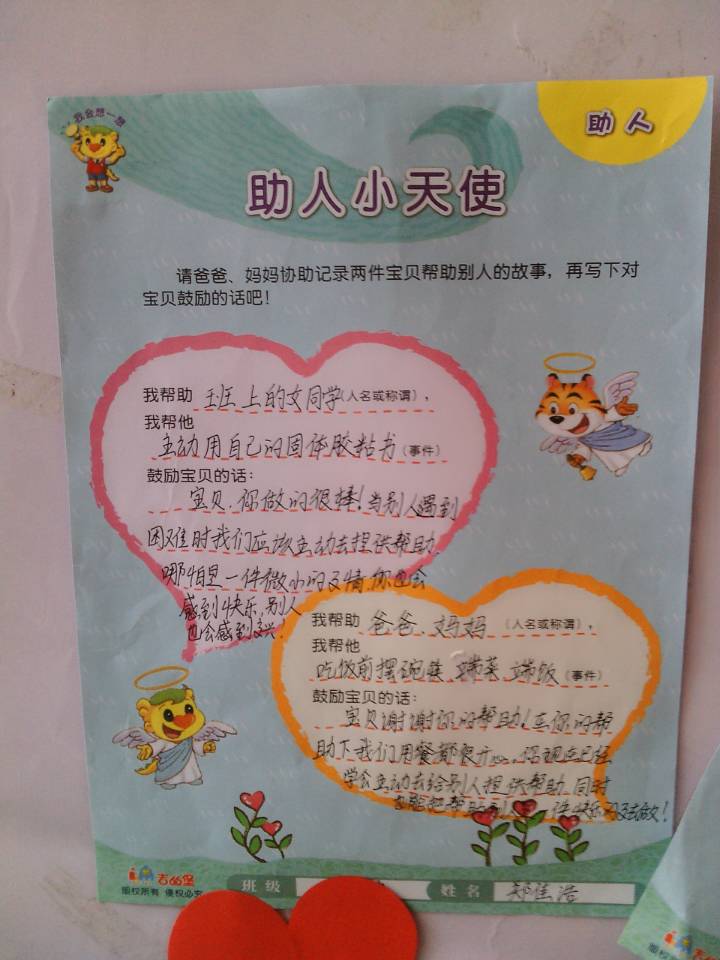 我会想一想
助人
助人小天使
请爸爸、妈妈协助记录两件宝贝帮助别人的故事，再写下对
宝贝鼓励的话吧！
我帮助 班上的女同学（人名或称谓），
我帮他
主动用自己的固体胶粘书（事件）
鼓励宝贝的话：
宝贝，你做的很棒！当别人遇到
困难时我们应该主动去提供帮助，
哪怕是一件微小的事情，你也会
感到快乐，别人
也会感到高兴！
我帮助 爸爸、妈妈（人名或称谓），
我帮他
吃饭前摆碗筷、端菜、端饭（事件）
鼓励宝贝的话：
宝贝谢谢你的帮助！在你的帮
助下我们用餐都很开心，你现在已经
学会主动去给别人提供帮助，同时
也能把帮助别人 件快乐的事去做！
吉的堡
版权所有 侵权必究
班级
姓名 郑佳浩